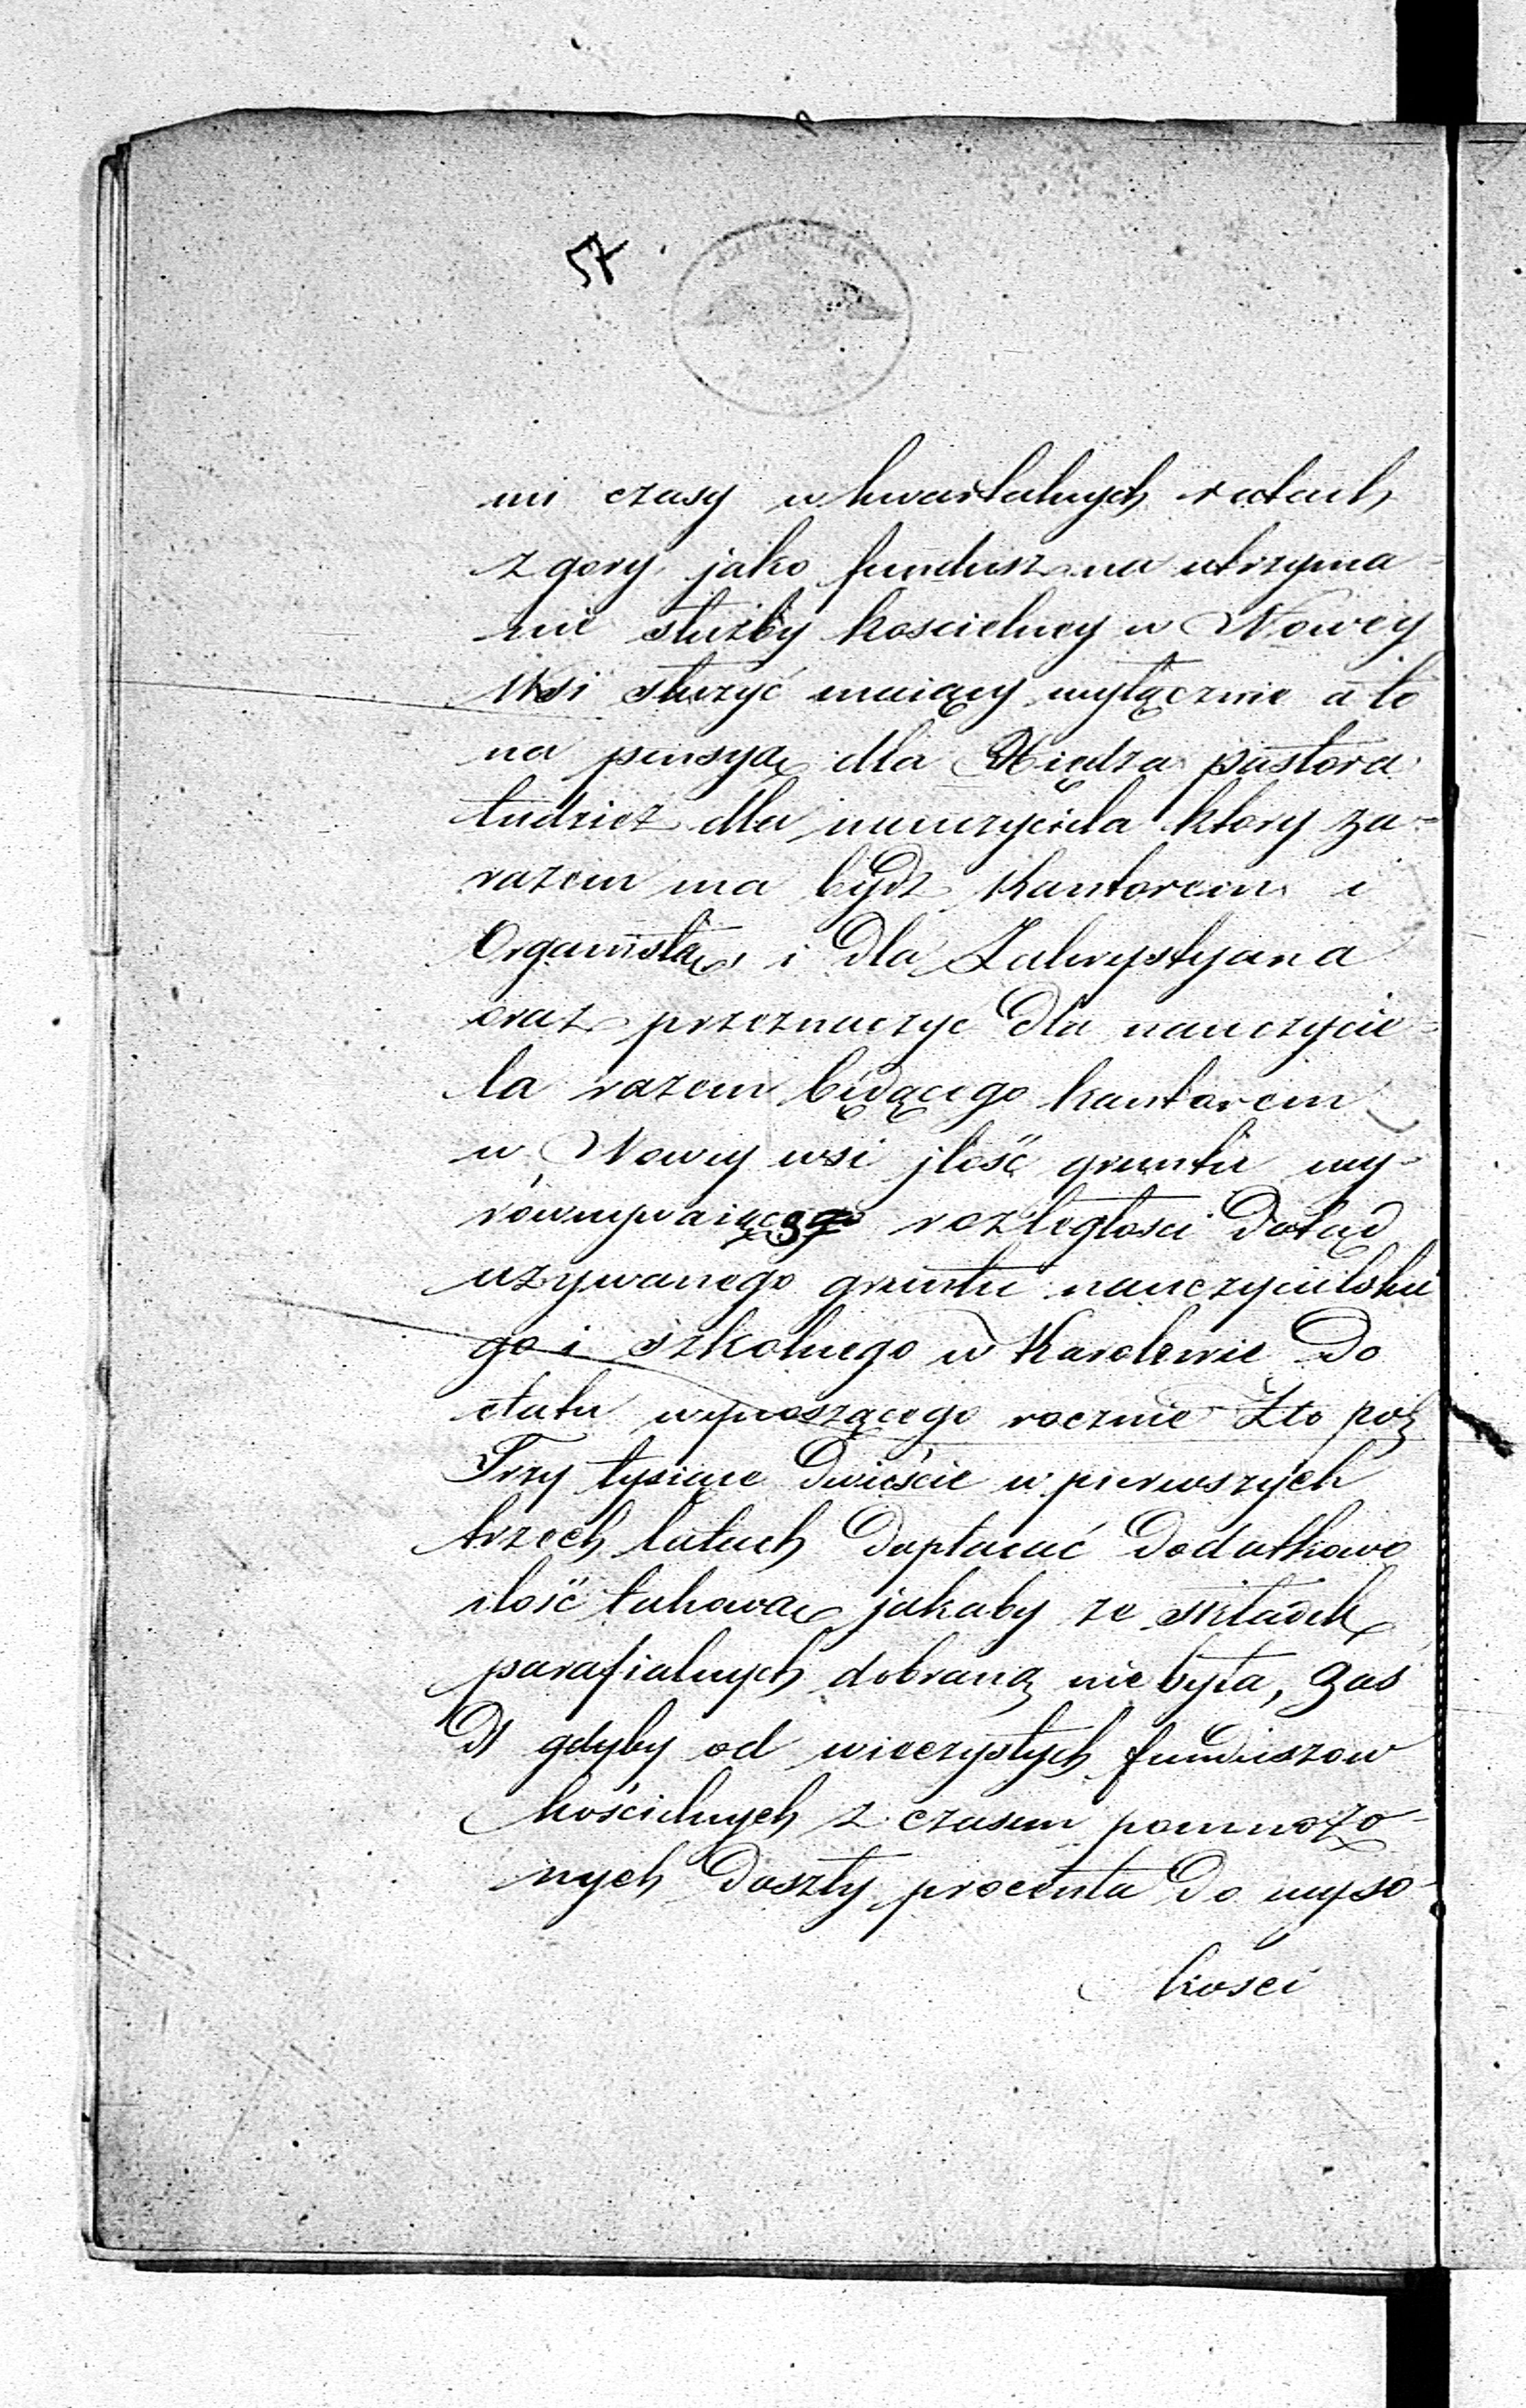 57
mi czasy w kwartalnych ratach
z gory jako fundusz na utrzyma-
nie służby koscielney w Nowey
Wsi służyć maiący wyłącznie a to
na pensyą dla Xiędza pastora
tudzież dla nauczyciela ktory za-
razem ma bydz Kantorem i
Organistą, i dla Zakrystyana
oraz przeznaczyc dla nauczycie-
la razem będącego kantorem
w Nowey wsi jlość gruntu wy-
równywaiącego rozległosci dotąd
używanego gruntu nauczycielskie
go i szkolnego w Karolewie Do
etatu wynoszącego rocznie Zło pol
Trzy tysiące Dwieście w pierwszych
trzech latach Dopłacać Dodatkowo
ilość takową jakaby ze składek
parafialnych dobraną nie była, zas
D/ gdyby od wieczystych funduszow
kościelnych z czasem pomnożo-
nych Doszły procenta Do wyso-
kosci